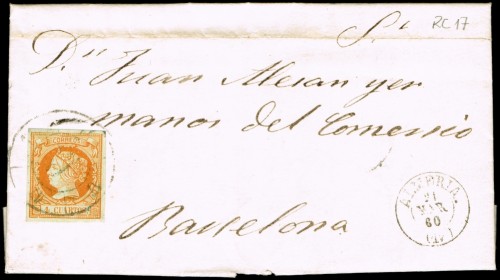 RC17
S.
D.n Juan Alesan y er
manos del Comersio
Barselona
CORREOS
4 CUARTOS
ALMERIA.
21
MAR
60